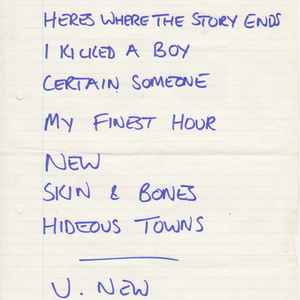 HERES WHERE THE STORY ENDS
I KICKED A BOY
CERTAIN SOMEONE
MY FINEST HOUR
NEW
SKIN & BONES
HIDEOUS TOWNS
U. NEW